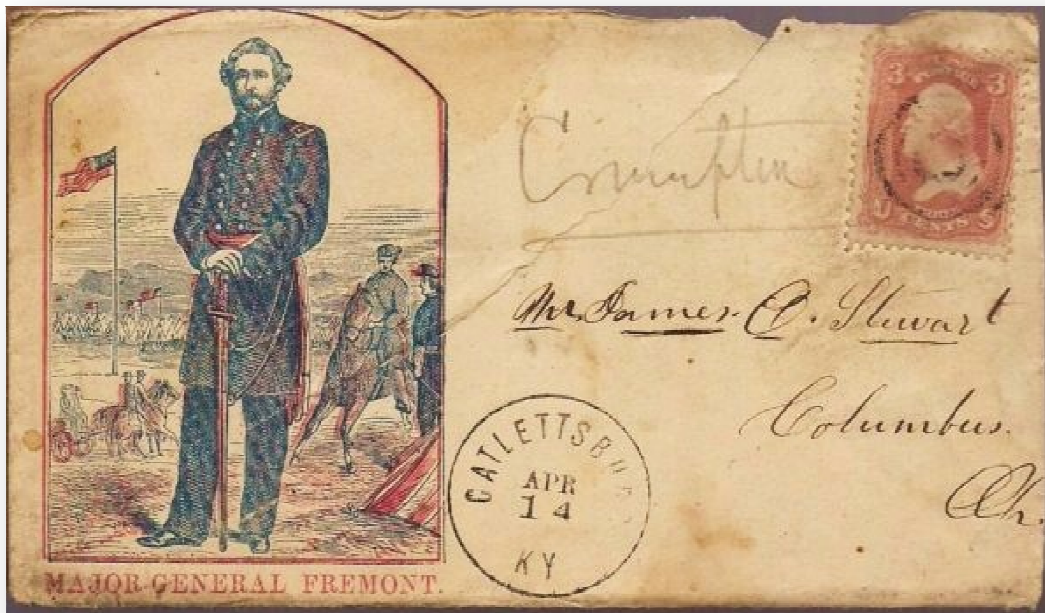 Crumpton
3 3
U CENTS S
Mr. James O. Stewart
Columbus.
Oh.
CATLETTSBU
APR
14
KY
MAJOR GENERAL FREMONT.